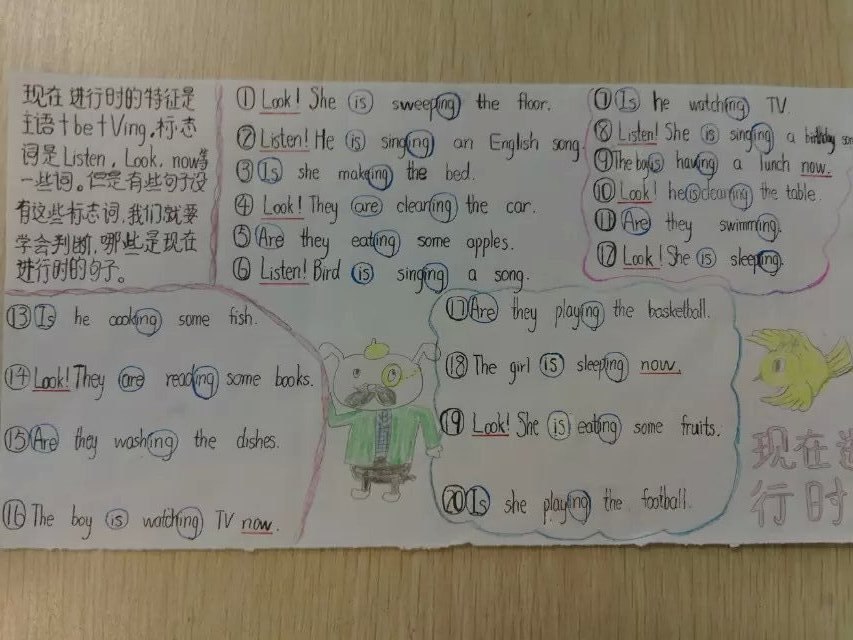 现在进行时的特征是
主语+be+Ving,标志
词是Listen, Look, now等
一些词。但是有些句子没
有这些标志词,我们就要
学会判断,哪些是现在
进行时的句子。
① Look! She is sweeping the floor.
② Listen! He is singing an English song.
③ Is she makeing the bed.
④ Look! They are cleaning the car.
⑤ Are they eating some apples.
⑥ Listen! Bird is singing a song.
⑦ Is he watching TV
⑧ Listen! She is singing a birthday
⑨ The boy is having a lunch now.
⑩ Look! he is cleaning the table.
⑪ Are they swimming.
⑫ Look! She is sleeping.
⑬ Is he cooking some fish.
⑭ Look! They are reading some books.
⑮ Are they washing the dishes.
⑯ The boy is watching TV now.
⑰ Are they playing the basketball.
⑱ The girl is sleeping now.
⑲ Look! She is eating some fruits.
⑳ Is she playing the football.
现在进
行时